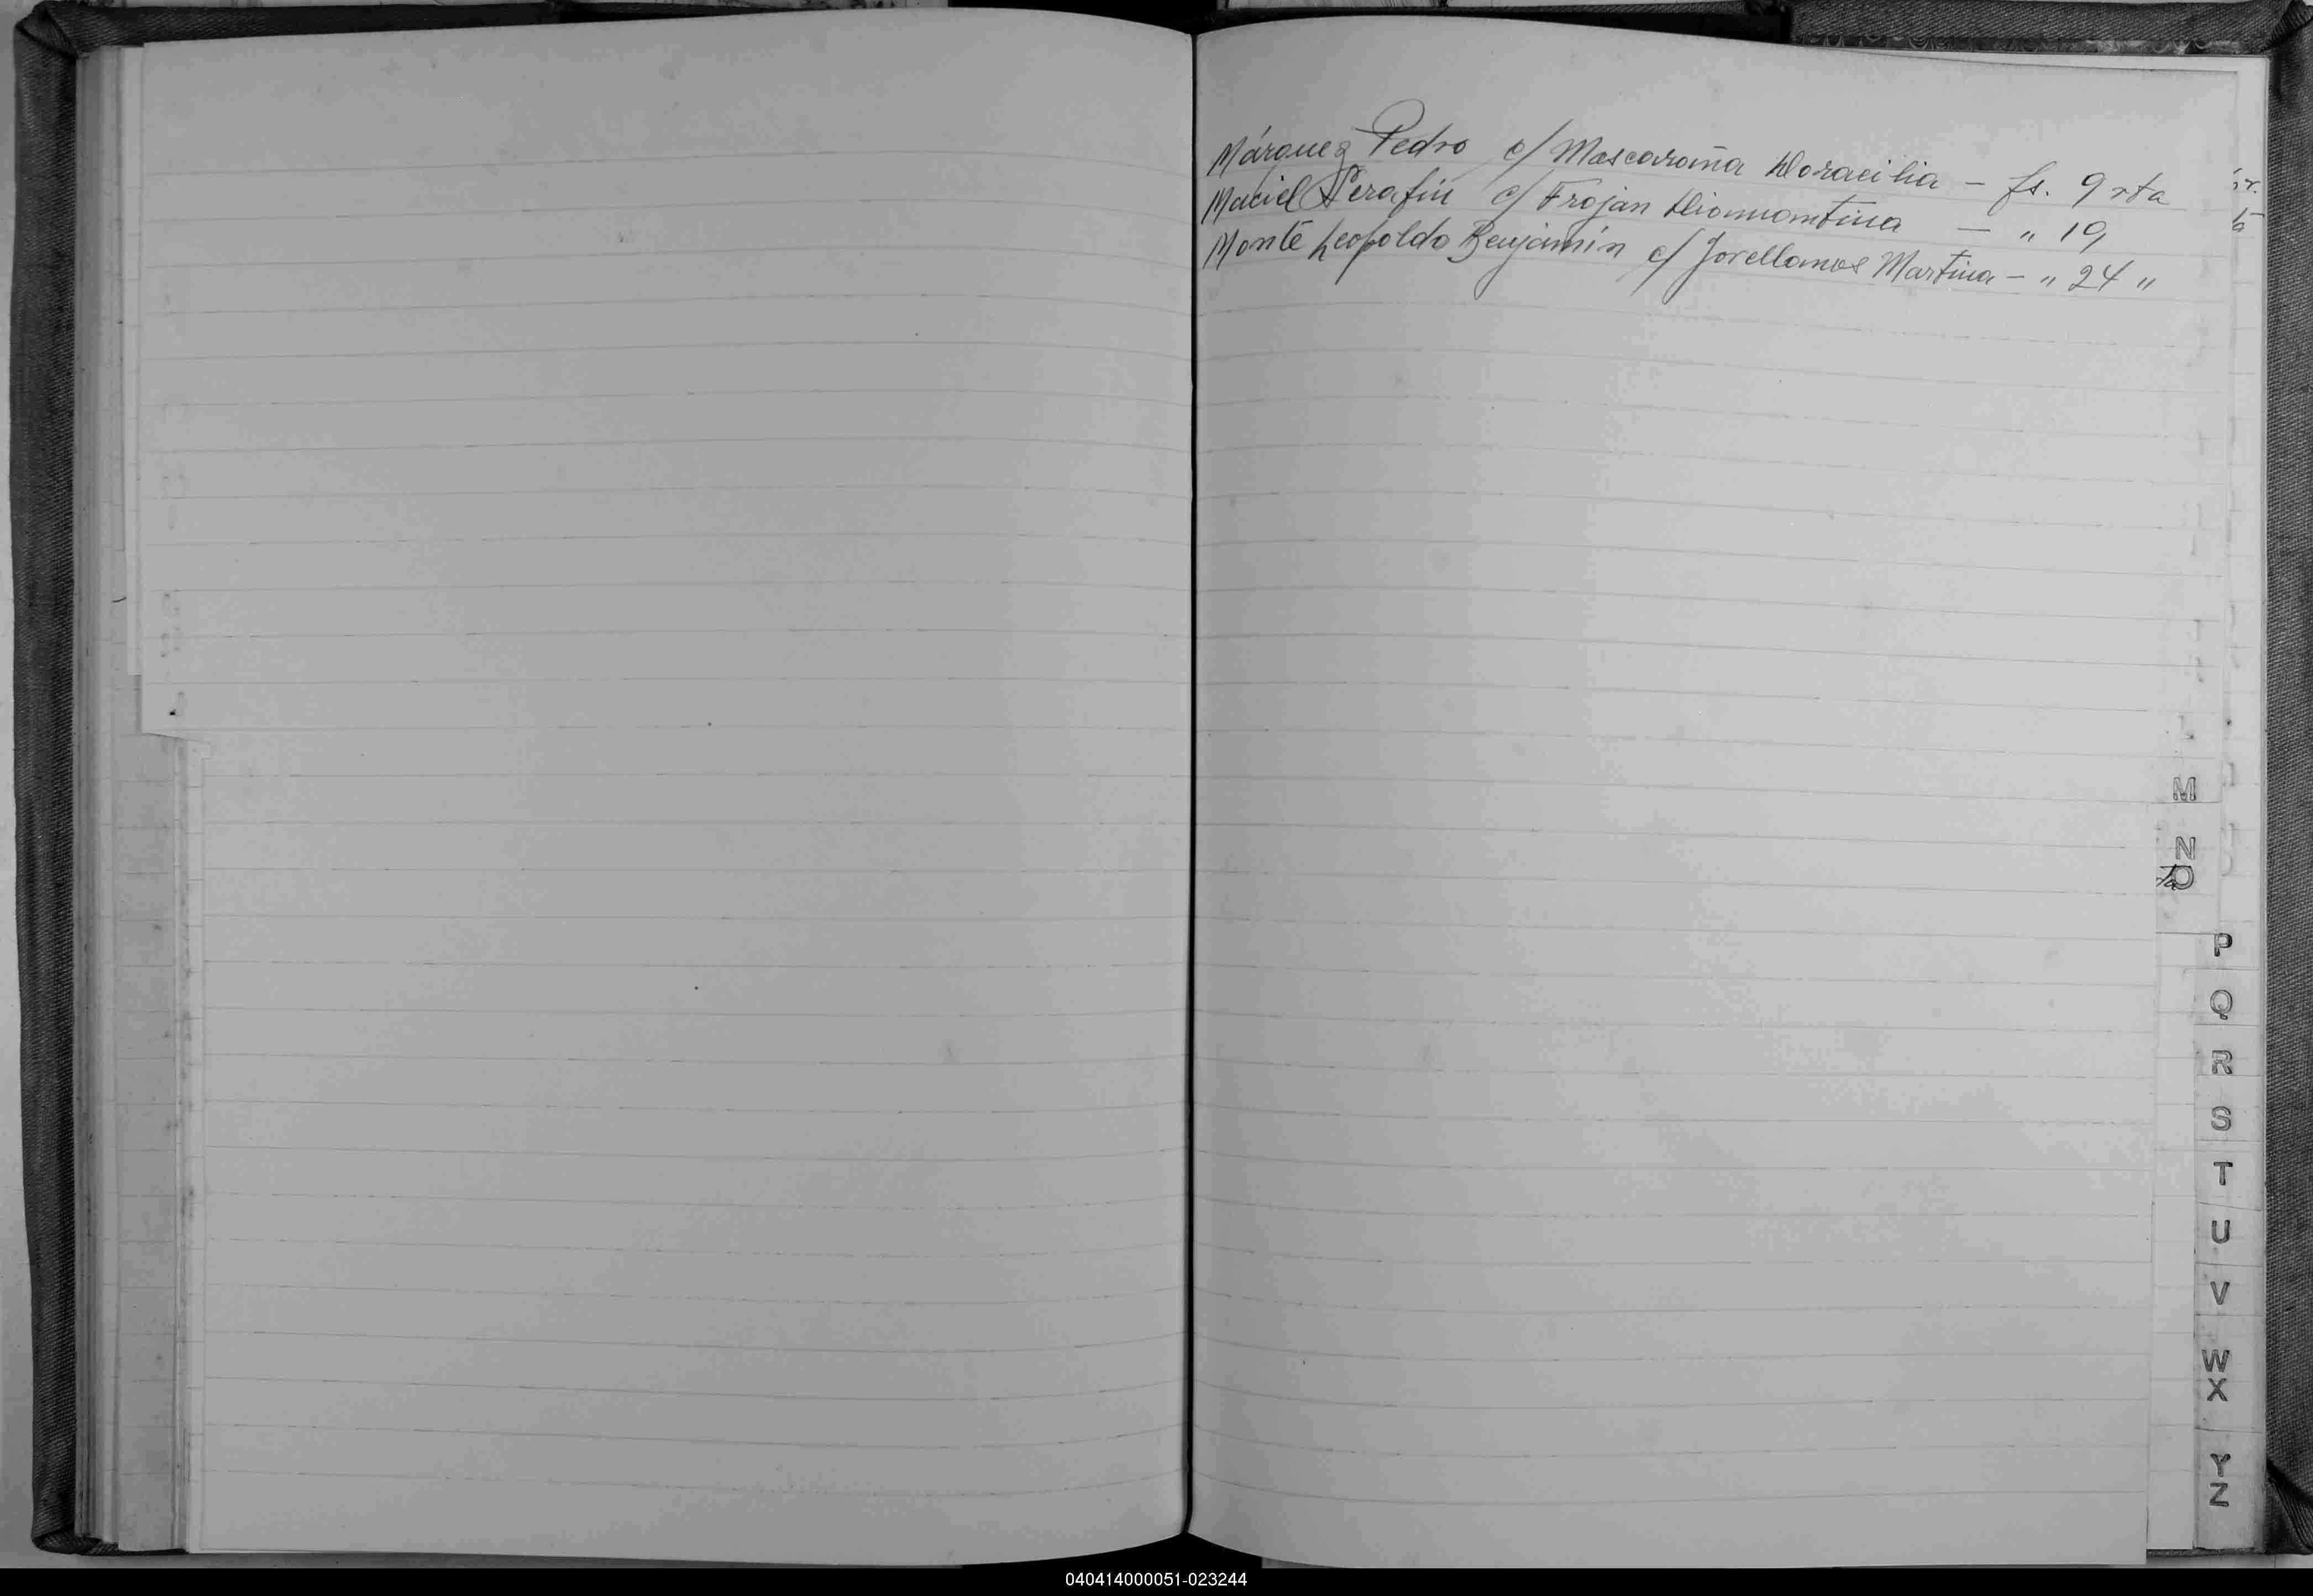 Márquez Pedro c/ Mascaroña Doracilia - fs. 9 vta
Maciel Serafín c/ Froján - " 19
Monté Leopoldo Benjamín c/ Jovellanos Martina - " 24 "
M
N
O
P
Q
R
S
T
U
V
W
X
Y
Z
040414000051-023244